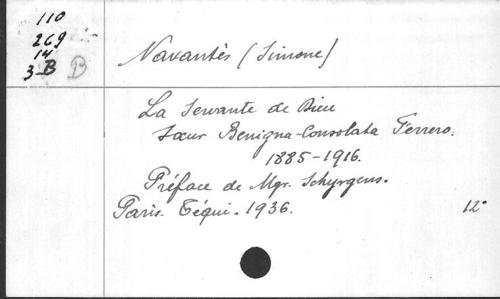 110
269
14
3 B B
Navantès (Simone)
La Servante de Dieu
Sœur Benigna-Consolata Ferrero.
1885-1916.
Préface de Mgr. Schyrgens.
Paris. Téqui. 1936. 12°